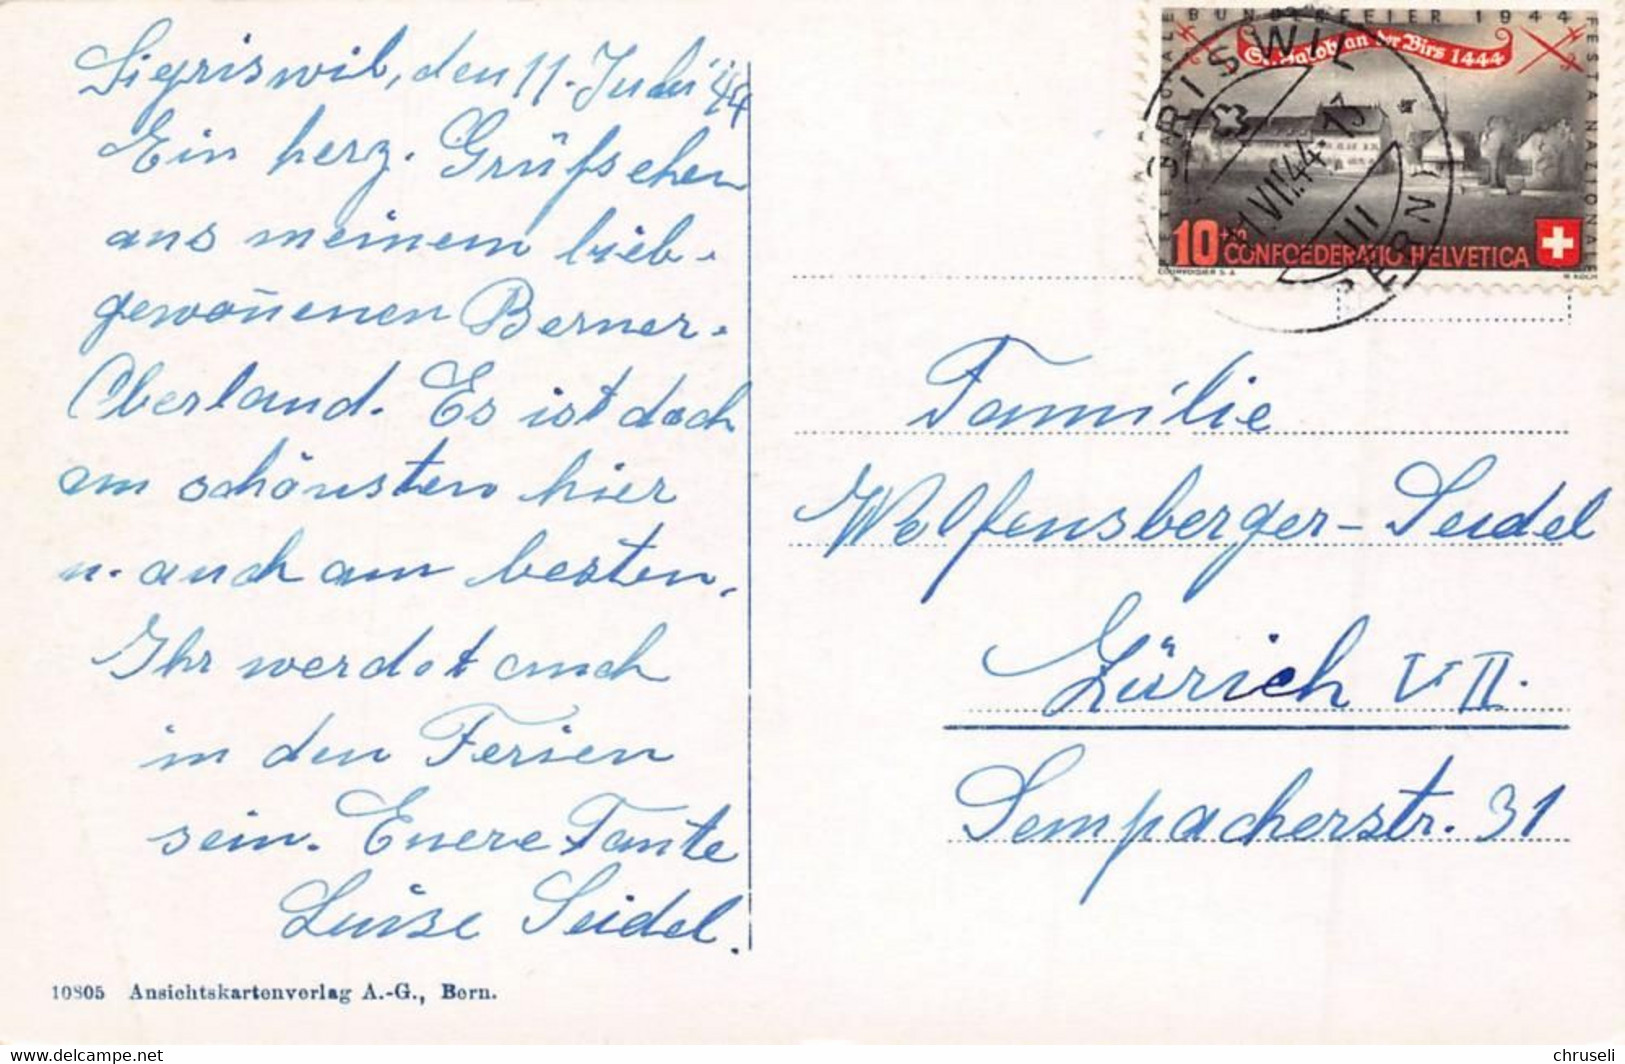 Sigriswil, den 11. Juli 44
Ein herz. Grüßchen
aus meinem lieb-
gewon̄enen Berner-
Oberland. Es ist doch
am schönsten hier
u. auch am besten.
Ihr werdet auch
in den Ferien
sein. Euere Tante
Luise Seidel.
10805 Ansichtskartenverlag A.-G., Bern.
BUNDESFEIER 1944
FESTA NAZIONALE
St. Jakob an der Birs 1444
10+10 CONFOEDERATIO HELVETICA
COURVOISIER S.A.
SIGRISWIL
11.VII.44.-13
(BERN)
Familie
Wolfensberger-Seidel
Zürich VII.
Sempacherstr. 31
https://www.delcampe.net
chruseli